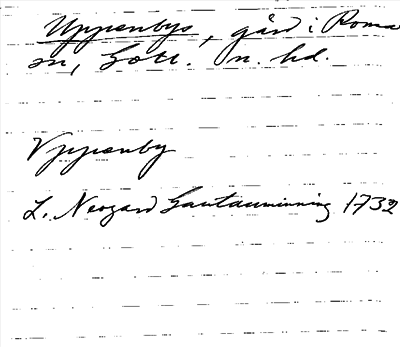 Uppenbys, gård i Roma
sn, Gotl. n. hd.
Vppenby
L. Neogard Gautauminning 1732